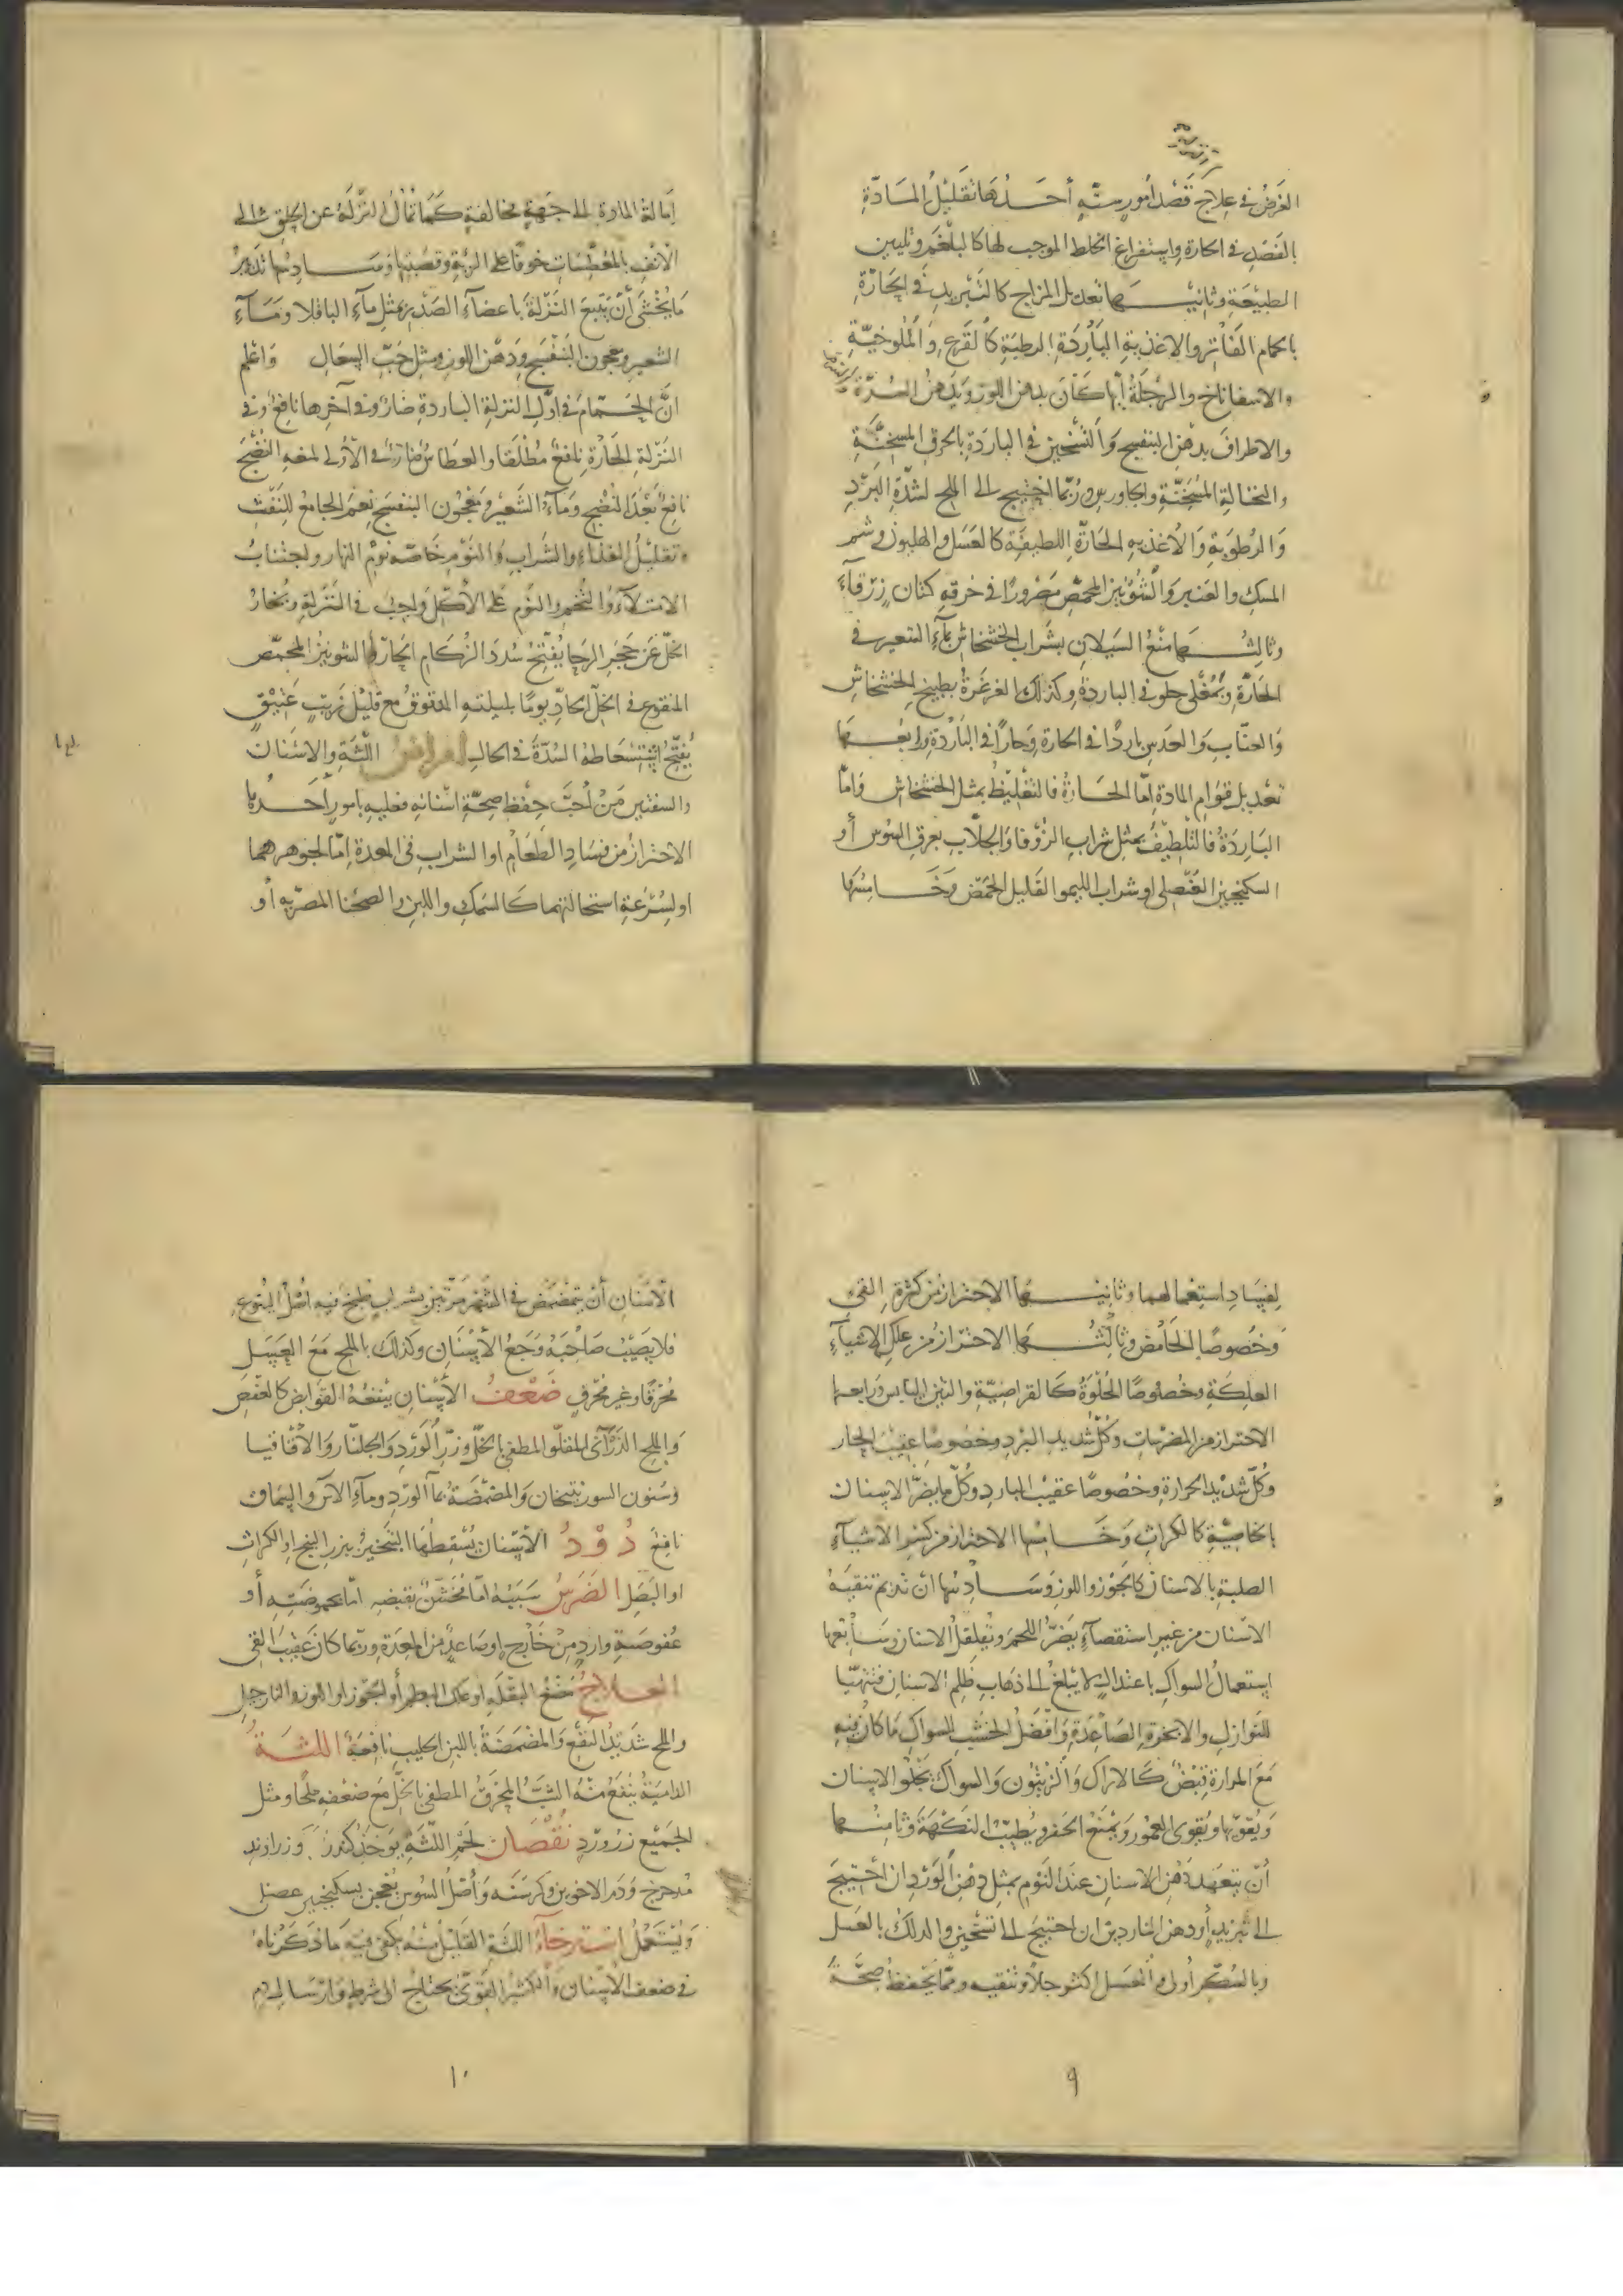 الغَرَضُ في عِلاجٍ قَصْد أمورٍ ستّةٍ أحَدُهَا تقليلُ المَادّةِ
بالفَصْدِ في الحارة واستفراغ الخلط الموجب لها كالبلغَم وتليين
الطبيعَة وثانيها تعديل المزاج كالتّبريد في الحارّةِ
بالحمام الفَاتر والاغذيةِ البَارِدَةِ الرطبَة كالقَرع والمُلوخيّةِ
والاسفاناخ والرجلَةُ أيها كَانَ بدهن اللوز وتدهن السُرّة
والاطرافَ بدهن البنفسج وَالتَسْخين في البارَدَة بالخرق المسخنَة
والنخالةِ المُسَخَنّة والجاورس ورُبّما احتيج الى الملح لشدّةِ البَرْدِ
وَالرُطُوبَةِ وَالأغذيه الحَارّةِ اللطيفَةِ كالعَسَل والهليون وشم
المسك والعَنبر وَالشُونيز المحمّص مَصْرورًا في خرقةِ كتان زرقاءَ
وثالثها منْعُ السَيَلانِ بشَراب الخشخاش بمآءِ الشعير في
الحَارّةِ وبمُغلى حلو في الباردةِ وكذلك الغرغَرةُ بطبيخ الخشخاش
وَالعنّابِ وَالعدَس باردًا في الحارةِ وَحارًا في البَارْدَةِ ورابعُها
تعديل قوامِ المادةِ امّا الحَارةُ فالتغليظُ بمثل الخشخاش وَامّا
البَارِدَةُ فالتَلطيفُ بمثل شراب الزُوفا وَالجلاّبِ بعرق السُوس أو
السكنجبين العُنصلي او شراب الليموا القليل الحمَضِ وَخَامِسُها
إمَالة المادة الى جَهةٍ مخالفةٍ كَمَا تمالُ النزلَةُ عن الحلق الى
الانف بالمُعَطِّسَات خوفًا على الرئةِ وقصبتها وَسَادِسُها تدبيرُ
مَا يُخْشَى أنْ تَتبعَ النَزلةَ باعضآءِ الصَدْرِ بمثل مآءِ الباقلا وَمَاءِ
الشعير ومعجون البَنفْسَج ودهن اللوز ومثل حَبّ السُعَال وَاعلم
انّ الحَمّامَ في اوّلِ النزلةِ الباردةِ ضارّ وفي آخرها نافعٌ وفي
النَزلة الحَارّة نافعٌ مُطلَقًا والعطاسُ ضارّ في الأوّلِ لمنعهِ النُضْجَ
نافعٌ بَعْدَ النُضْجِ وَمآءُ الشَعيْر وَمَعْجُون البنفسَج نعمَ الجامعُ للنَفْث
وتقليْلُ الغذاءِ والشَراب وَالنوْمِ خَاصّةً نوْمَ النهارِ واجتنابُ
الامتلآءِ وَالتُخَمِ والنومِ على الأكلِ واجبٌ في النزلةِ وبُخارُ
الخلّ عَن حَجَرِ الرحا يُفتّح سُدَدَ الزُكام الحَارّ والشونيز المحمّص
المنقوع في الخلّ الحَادّ يومًا بليلتهِ المدقوقُ مع قليْل زَيتٍ عَتيْقٍ
يُفَتّحُ استِسْعَاطه السُدّةَ في الحالِ امراض اللّثةِ والاسْنان
والشفتين مَنْ أحَبّ حِفظَ صِحّةِ اسْنانهِ فعليهِ بأمورٍ أحَدُها
الاحترازُ من فسَادِ الطَعَامِ او الشرابِ في المعدة اِمّا لجوهرهما
او لسُرْعَةِ استحالتهما كَالسَمَكِ واللبن والصحنا المصريّه أو
لِفَسَادِ استِعْمالهما وَثانيْها الاحتراز من كثرةِ القيء
وَخصُوصًا الحَامضِ وثالثُها الاحتراز من علكِ الاشيآءِ
العلِكَةِ وخُصُوصًا الحُلوَة كَالقراصيّةِ والتين اليابس وَرابعها
الاحتراز من المضرّسات وكلّ شديد البردِ وخصُوصًا عقيْبَ الحار
وَكُلّ شدِيْد الحَرارةِ وخُصُوصًا عقيْبَ البارد وكُلّ ما يضرّ الاسنان
بالخاصيّةِ كالكراثِ وَخَامِسُها الاحتراز من كَسْرِ الاشيآءِ
الصلبةِ بالاسنان كالجوْز واللوز وَسَادِسُها ان تديم تنقيَهَ
الاسنان من غير استقصآءٍ يَضُرّ اللحمَ ويُقلقلُ الاسنان وَسَابعُها
استعمالُ السواكِ باعتدالٍ لا يَبْلغُ الى ذهابِ ظَلمِ الاسنان فتتهيّا
للنوازلِ والابخرةِ الصَاعدَةِ وَافضَلُ الخَشبِ للسواكِ مَا كان فيهِ
مَعَ المرارةِ قبْضٌ كَالاراكِ وَالزيتُون وَالسواك يَجْلو الاسنان
وَيُقوّيها ويُقوي العمُور وَيَمْنَعُ الحَفر ويُطيّبُ النَكْهَةَ وَثامِنُها
أنْ يتعَهد دَهْن الاسنانِ عندَ النوْمِ بمثل دهْن الوَرْد ان احْتيج
الى تبريدٍ أو دهن الناردين ان احتيج الى تسخين والدلكُ بالعَسَل
وبالسُكّر أولى والعَسَل اكثر جلاءً وتنقيه وممّا يَحفَظُ صحّةَ
٩
الأسْنانِ أنْ يتمَضمَض في الشهْر مرّتين بشرابٍ طُبخ فيهِ اصْلُ اليتوع
فلا يُصيْبُ صَاحبَهُ وَجَعُ الأسْنانِ وكذلك بالملح مَعَ العَسَلِ
مُحْرَقًا وغير مُحْرَقٍ ضَعْفُ الأسْنانِ ينفعُهُ القوابض كالعَفْصِ
وَالملحِ الدَرْآنى المقلوّ المطفي بالخَلّ وزرّ الوَرْد وَالجلنّار وَالاقاقيا
وسَنون السورنجان وَالمضمَضَةُ بمآ الوَرْدِ ومآءِ الآس والسُماق
نافعٌ دُوْدُ الأسْنان يُسْقِطُها التبَخيْرُ ببزر البنج او الكراثِ
او البَصَلِ الضَرَسُ سَبَبُهُ امّا مُخَشّنٌ بقبْضهِ امّا بحموضَتهِ أو
عُفوصَتهِ واردٍ مِنْ خَارْجٍ اوصَاعدٍ من المِعَدَةِ وربّما كانَ عَقيْبَ القي
العلاجُ مَضْغُ البَقْلَةِ او علك البطم أو الجوز او اللوز والنارجيل
والملح شَديْدُ النَفْعِ وَالمَضْمَضَةُ باللبن الحليب نافعَةٌ اللثَةُ
الدّاميَةُ ينفَعُ منْهُ الشَبُّ المحْرَقُ المطفي بالخَلّ مَعَ ضعْفهِ ملحًا ومثل
الجَميْع زروردِ نُقْصَانُ لحْمِ اللّثةِ يوخَذُ كُندُر وَزراوند
مدحرج وَدَم الاخوين وكرسَنه وَأصْلُ السُوسن يُعجَن بسكنجبين عصلى
وَيُستَعْمَلُ استِرخآءُ اللثةِ القليْل منْهُ يكفي فيهِ مَا ذَكَرْناهُ
في ضعف الأسْنانِ وَالكثيْرُ القَوِيّ يحتاجُ الى شَرْطٍ وَارْسَالِ دم
١٠